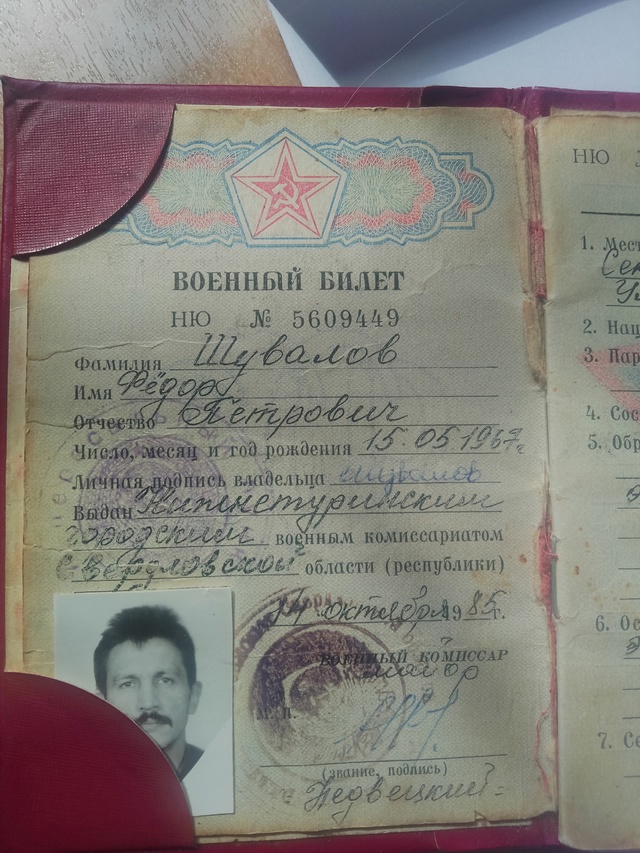 ВОЕННЫЙ БИЛЕТ
НЮ № 5609449
Фамилия Шувалов
Имя Фёдор
Отчество Петрович
Число, месяц и год рождения 15.05.1967г.
Личная подпись владельца Шувалов
Выдан Нижнетуринским
городским военным комиссариатом
Свердловской области (республики)
14 октября 1985г.
ВОЕННЫЙ КОМИССАР
майор
М. П.
(звание, подпись)
Недвецкий
НЮ
1. Мест
2. Нац
3. Пар
4. Сос
5. Обр
6. Ос
7. Се